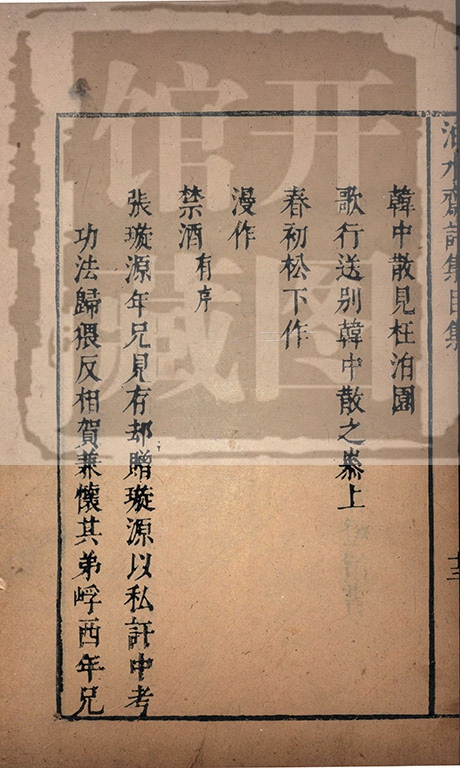 韓中散見枉泊園
歌行送別韓中散之泰上
春初松下作
漫作
禁酒有序
張璇源年兄見存却贈璇源以私計中考
功法歸猥反相賀兼懷其弟㟊西年兄
齋詩集目集